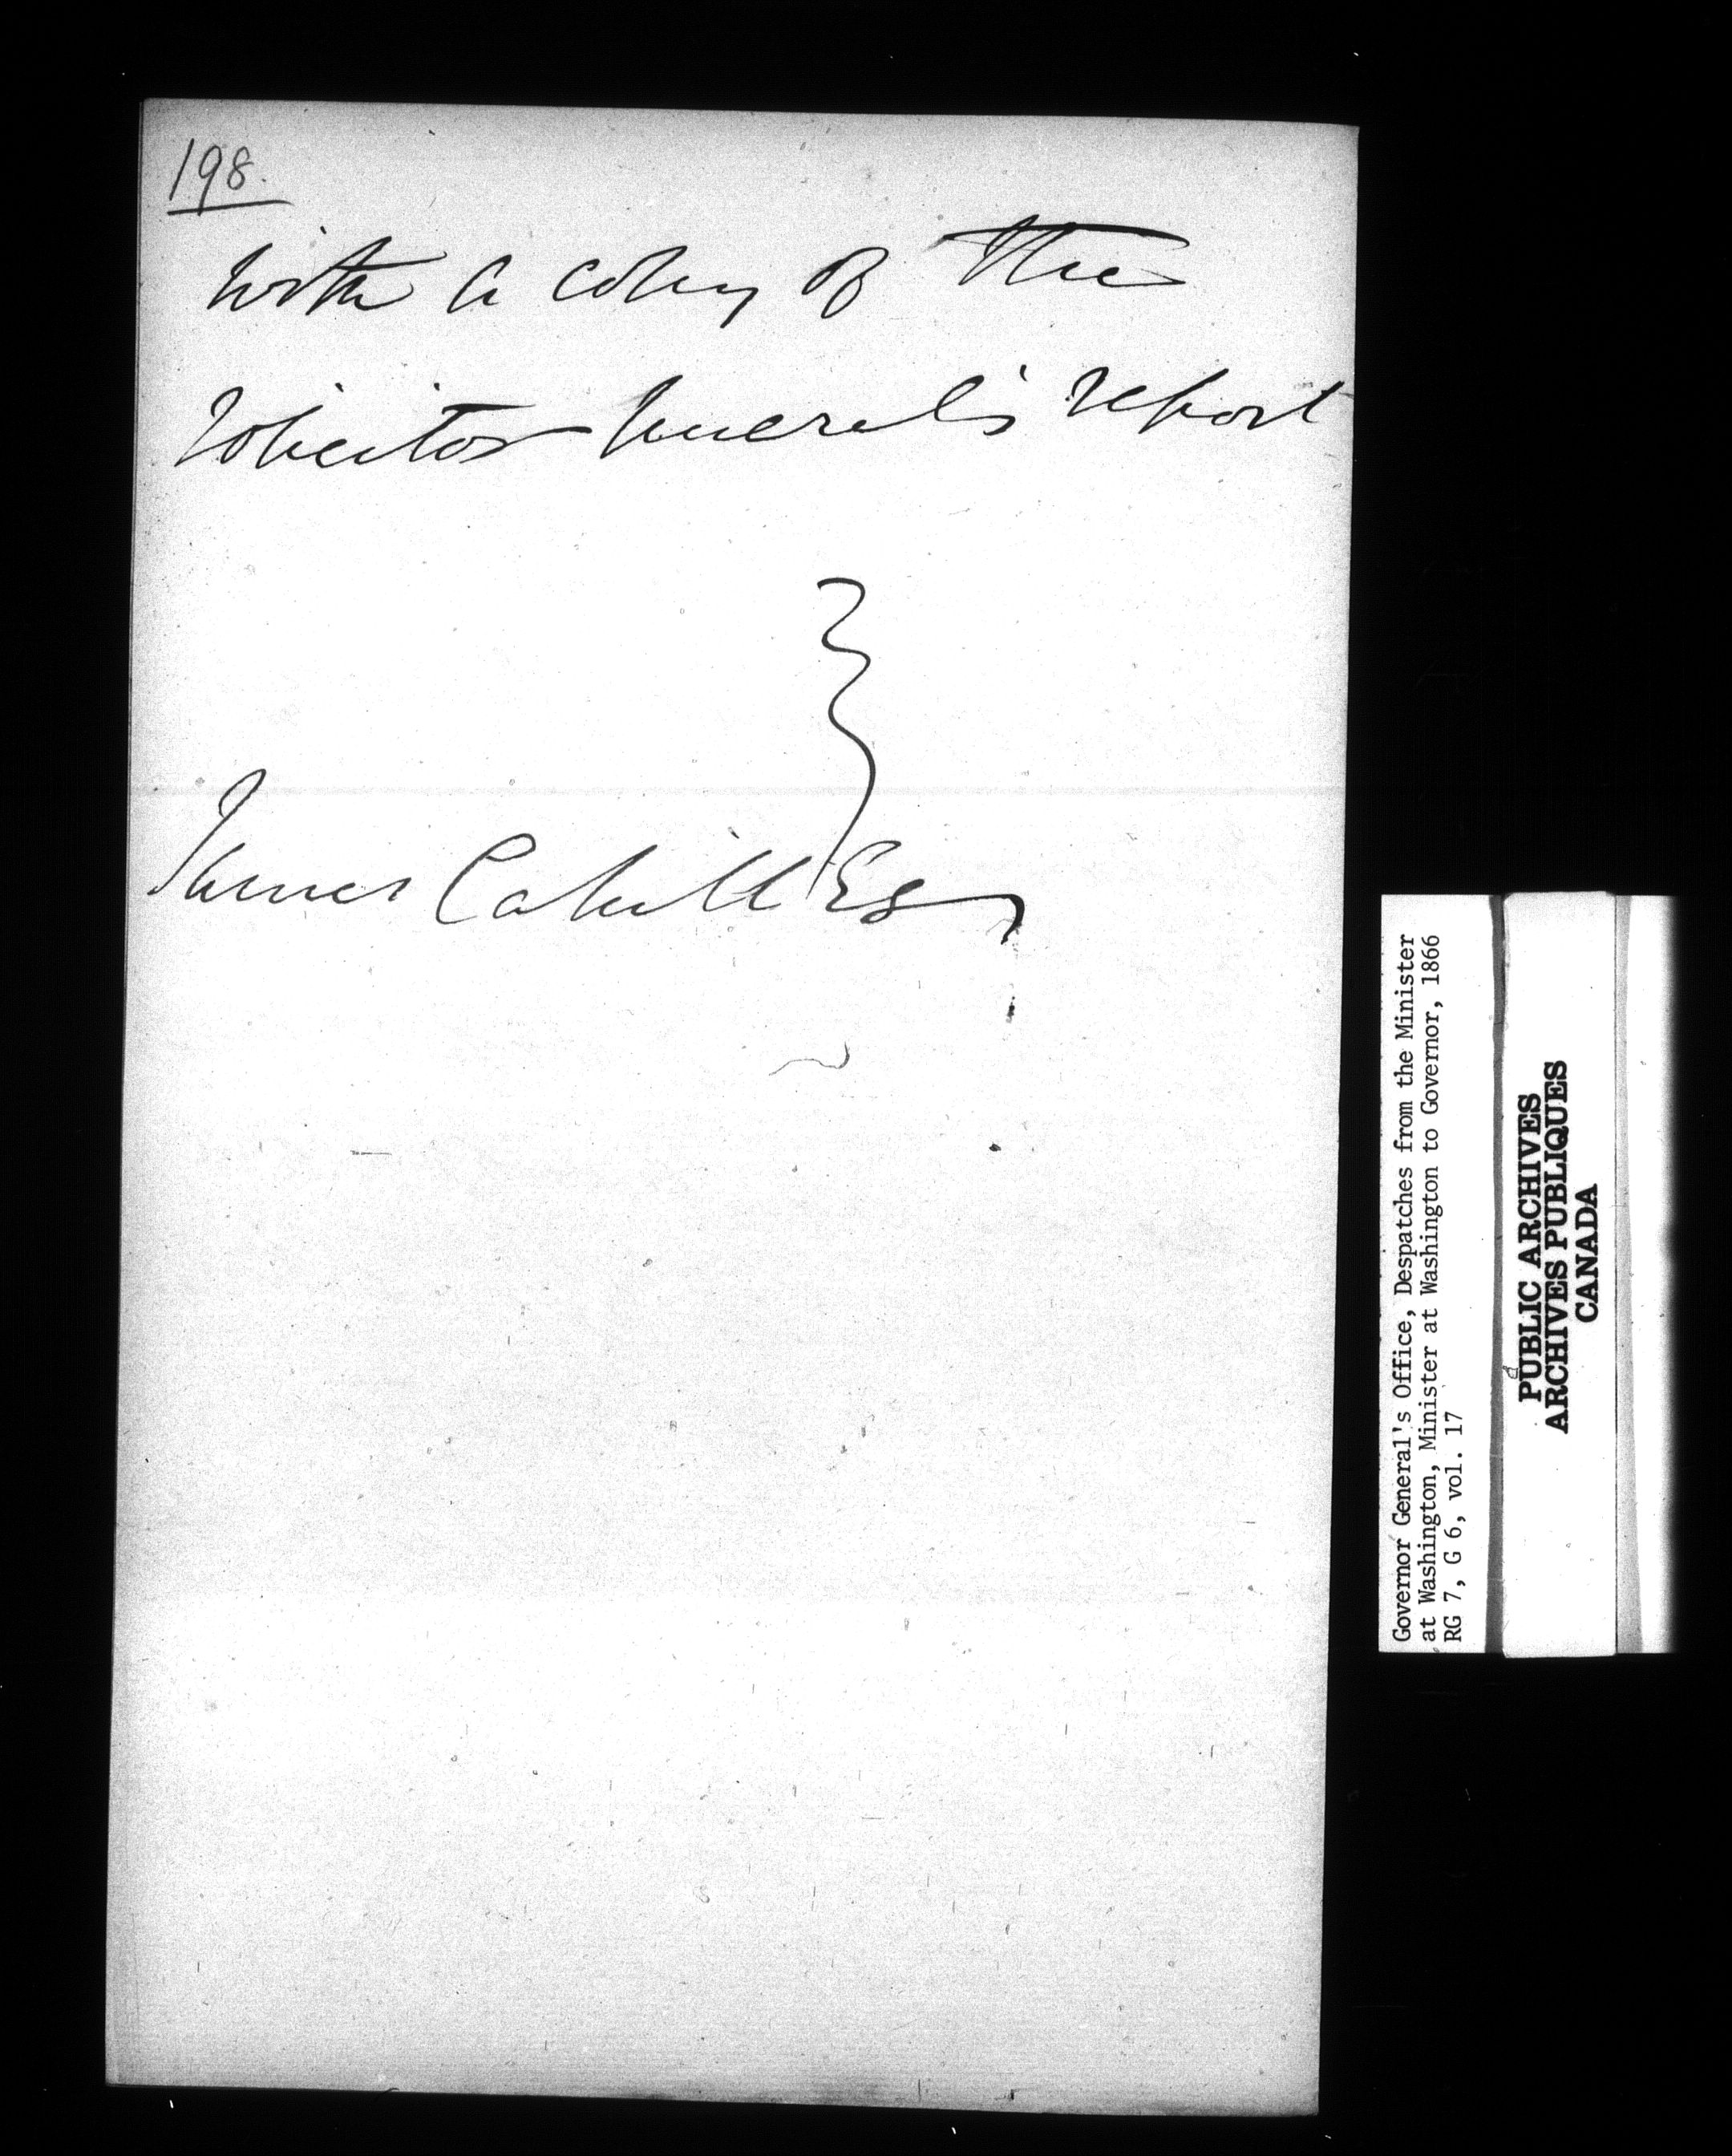 198.
with a copy of the
Solicitor General's report
James Cahill Esq
Governor General's Office, Despatches from the Minister
at Washington, Minister at Washington to Governor, 1866
RG 7, G 6, vol. 17
PUBLIC ARCHIVES
ARCHIVES PUBLIQUES
CANADA